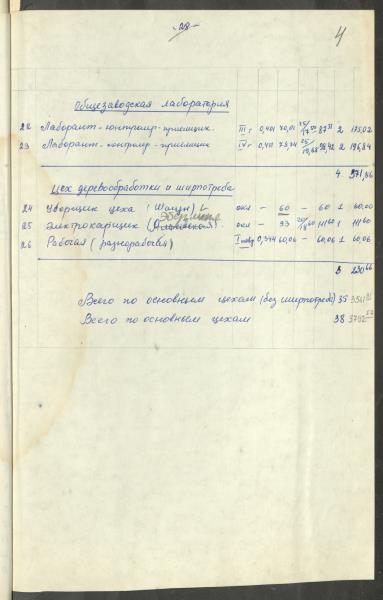 -28-
4
Общезаводская лаборатория
22 Лаборант-контролер-приемщик III т 0,401 70,01 25/17 50 87 51 2 175,02
23 Лаборант-контролер-приемщик IV т 0,451 25/19,68 98,42 2 196,84
4 371,86
Цех деревообработки и ширпотреба
24 Уборщик цеха (Шацун) окл - 60 - 60 1 60,00
25 Электрокарщик окл - 93 20/18 60 111 60 1 111 60
26 Рабочая (разнорабочая) I 0,344 60,06 - 60,06 1 60,06
3 230 66
Всего по основным цехам (без ширпотреба) 35
Всего по основным цехам 38 3792 52